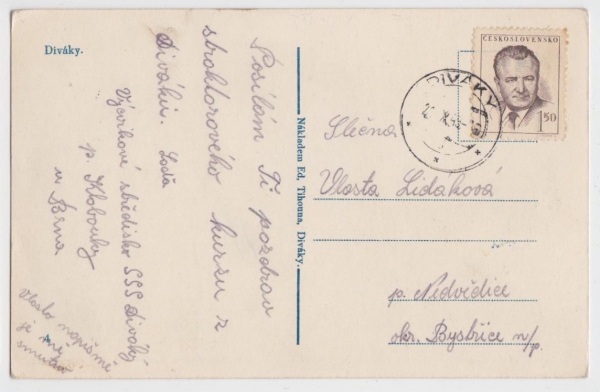 Diváky.
Posílám Ti pozdrav
z traktorového kursu z
Divák. Loďa
Výcvikové středisko SSS Diváky
p. Klobouky
u Brna
Vlasto napiš mě
je mě
smutno
Nákladem Ed. Tihouna, Diváky.
ČESKOSLOVENSKO
1.50
DIVÁKY
Slečna
Vlasta Lidaková
p. Nedvědice
okr. Bystřice n/p.